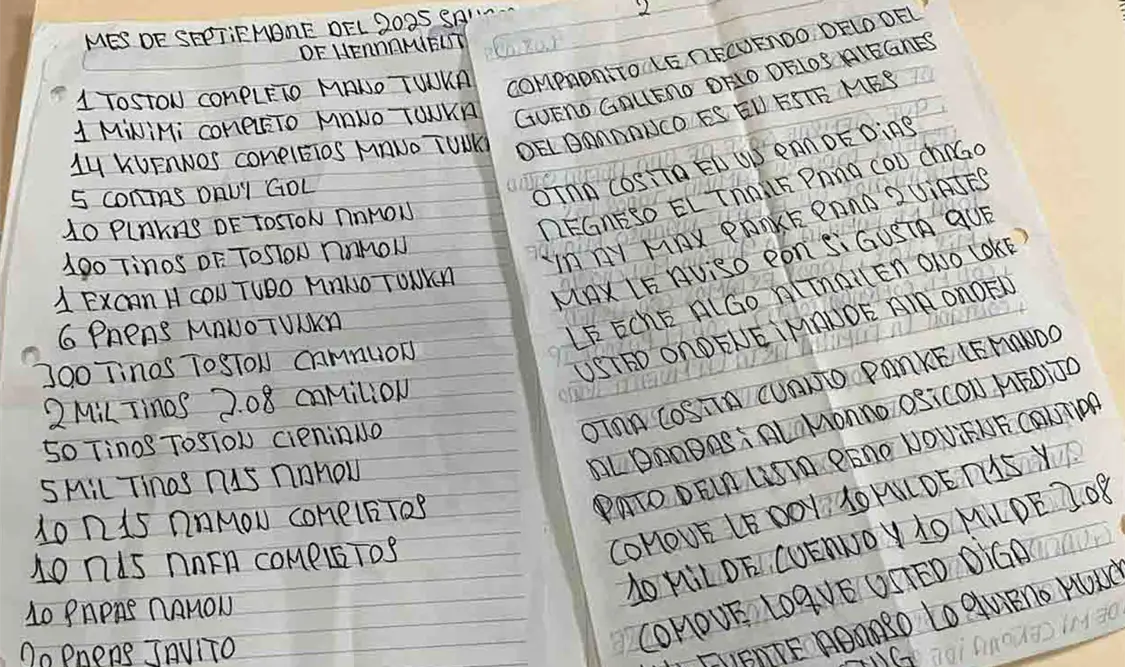 MES DE SEPTIEMBRE DEL 2025
DE HERRAMIENT
1 TOSTON COMPLETO MANO TUNKA
1 MINIMI COMPLETO MANO TUNKA
14 KUERNOS COMPLETOS MANO TUNK
5 CORTAS DAVY GOL
10 PLAKAS DE TOSTON RAMON
100 TIROS DE TOSTON RAMON
1 EXCAR H CON TUBO MANO TUNKA
6 PAPAS MANO TUNKA
300 TIROS TOSTON CAMALION
2 MIL TIROS 2.08 CAMILION
50 TIROS TOSTON CIPRIANO
5 MIL TIROS R15 RAMON
10 R15 RAMON COMPLETOS
10 R15 RAFA COMPLETOS
10 PAPAS RAMON
20 PAPAS JAVITO
2
COMPADRITO LE RECUERDO DELO DEL
GUERO GALLERO DELO DELOS ALEGRES
DEL BARRANCO ES EN ESTE MES
OTRA COSITA EN US PAR DE DIAS
REGRESO EL TRAILE PARA CON CHAGO
AY MAX PARKE PARA 2 VIAJES
MAX LE AVISO POR SI GUSTA QUE
LE ECHE ALGO AL TRAILER ONO LOKE
USTED ORDENE I MANDE ALA ORDEN
OTRA COSITA CUANTO PARKE LE MANDO
AL BARBAS I AL MORRO OSICON MEDIJO
PATO DELA LISTA PERO NOVIENE CANTIDA
COMOVE LE DOY 10 MIL DE R15 Y
10 MIL DE CUERNO Y 10 MIL DE 2.08
COMOVE LOQVE USTED DIGA
FUERTE ABRASO LO QUIERO